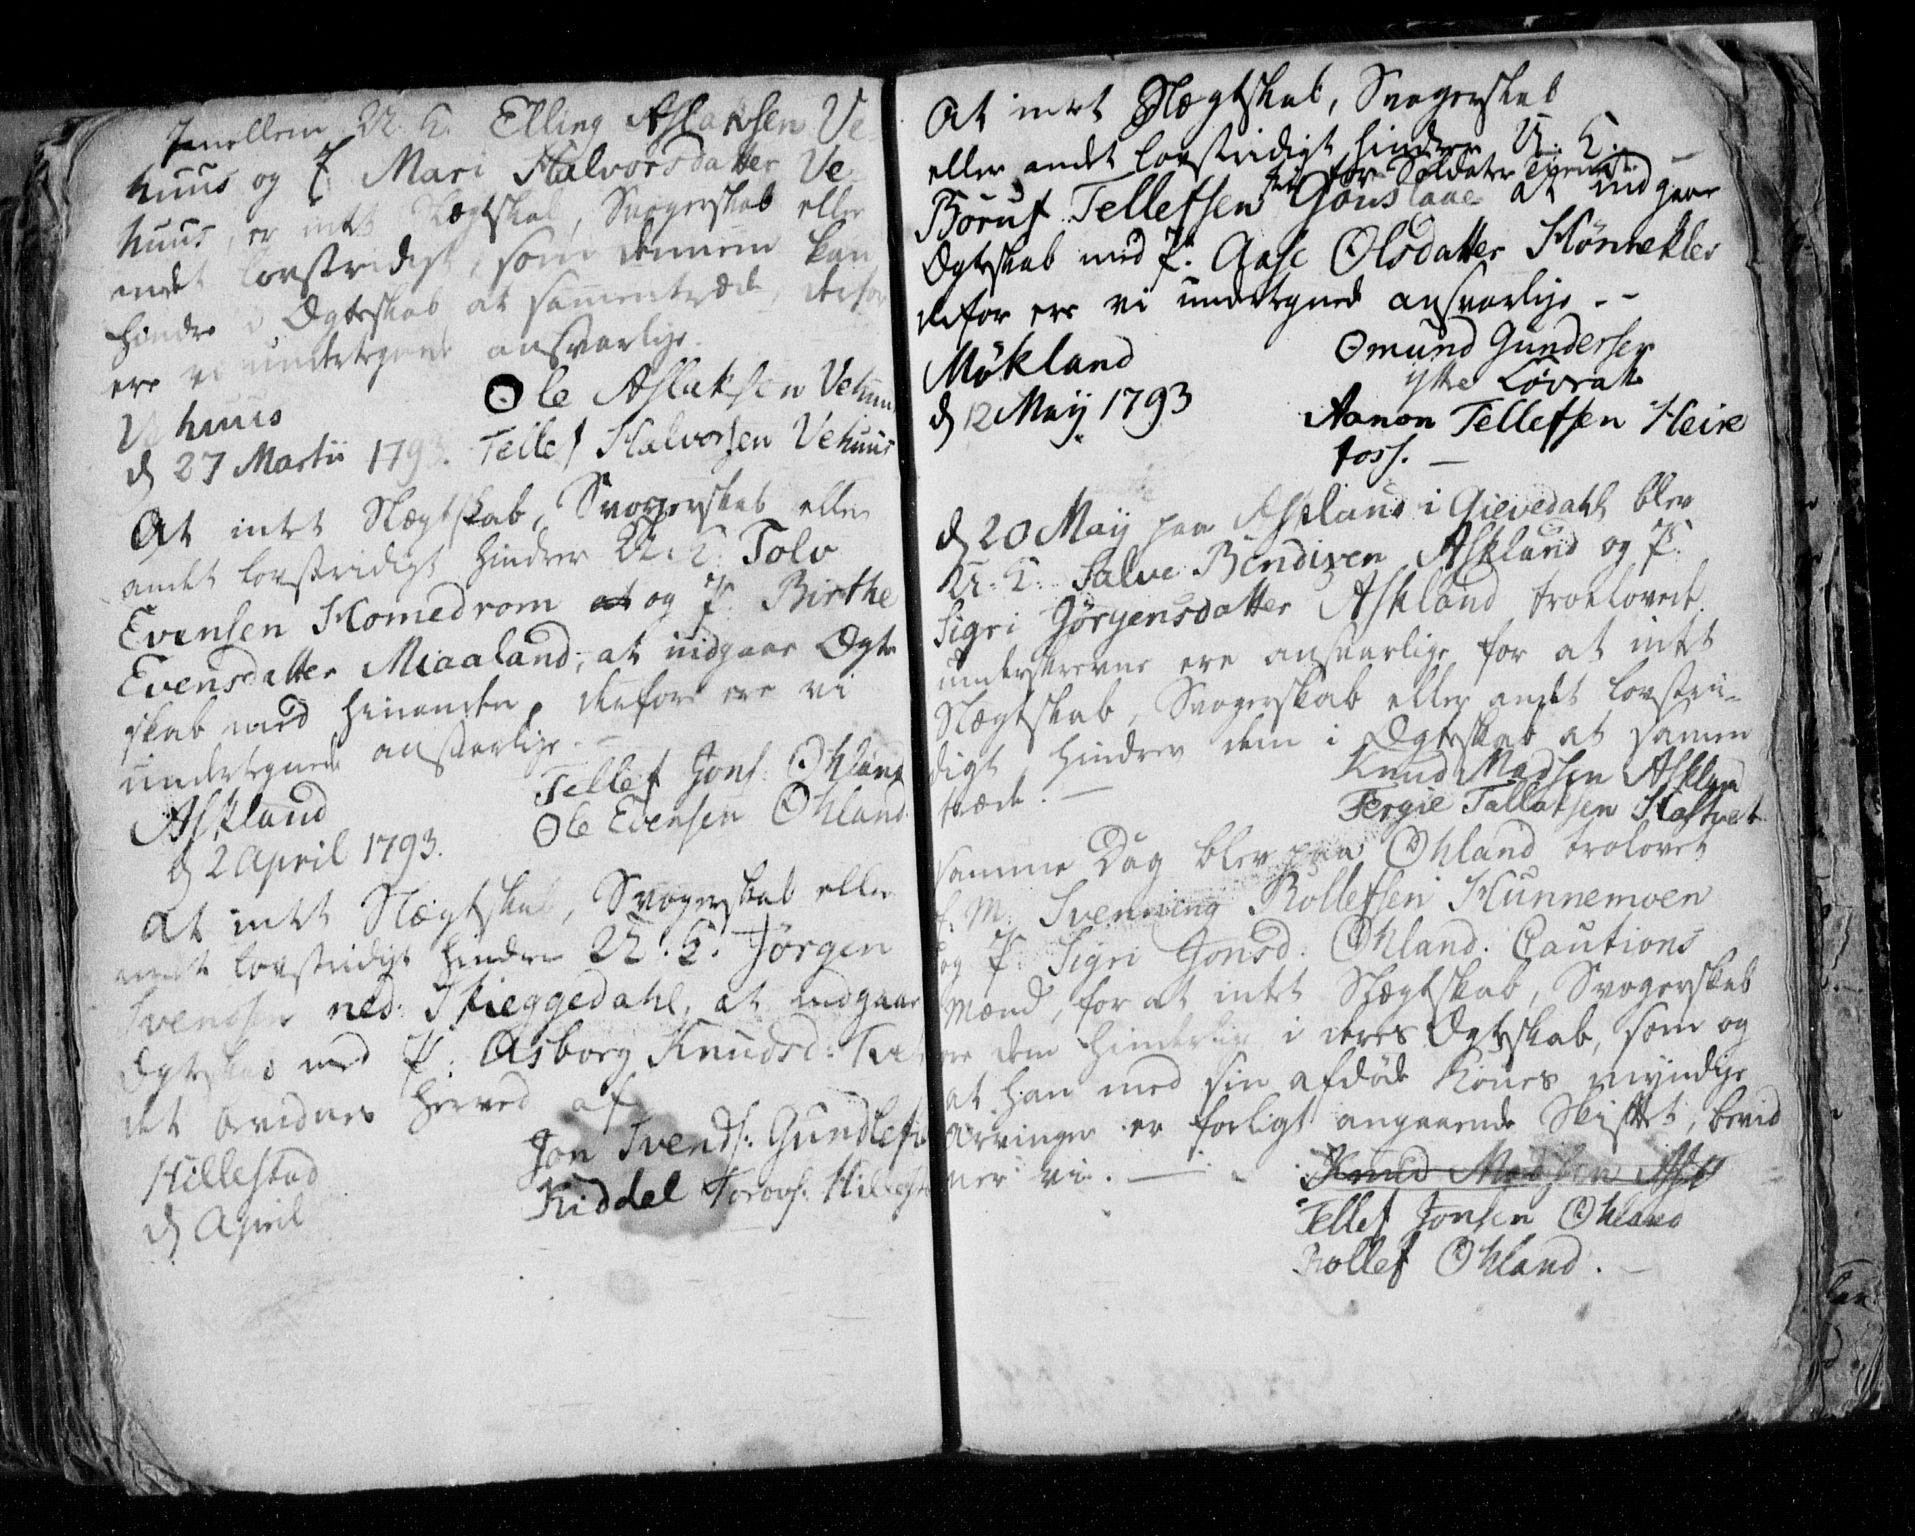 Imellem U. K. Elling Aslaksen Ve-
huus og P. Mari Halvorsdatter Ve-
huus, er intet Slægtskab, Svogerskab eller
andet lovstridigt, som dennem kan
hindre i Ægteskab at sammentræde, derfor
ere vi undertegnede ansvarlige.
Vehuus Ole Aslaksen Vehuus
d 27 Martii 1793. Tellef Halvorsen Vehuus
At intet Slægtskab, Svogerskab eller
andet lovstridigt hindrer U. K. Tolv
Evensen Homedrom at og P. Birthe
Evensdatter Miaaland, at indgaae Ægte
skab med hinanden, derfore ere vi
undertegnede ansvarlige. -
Askland Tellef Jons: Ohland
d 2 April 1793. Ole Evensen Ohland
At intet Slægtskab, Svogerskab eller
andet lovstridigt hindrer U. K. Jörgen
Svendsen ned: Skieggedahl, at indgaae
Ægteskab med P. Asborg Knudsd:
det bevidnes herved af
Hillestad Jon Svends: Gundlefs
d April Kiddel Torovs: Hillest
At intet Slægtskab, Svogerskab
eller andet lovstridigt hindrer U. K.
fri for Soldater Tieneste
Böruf Tellefsen Gouslaae at indgaae
Ægteskab med P. Aase Olsdatter Hönnekles
derfor ere vi undertegnede ansvarlige. - -
Mökland Omund Gundersen
d 12 Maij 1793 ytte Lövrak
Aanon Tellefsen Heire
foss. -
d 20 Maij paa Askland i Gievedahl blev
U. K. Salve Bendixen Askland og P.
Sigri Jörgensdatter Askland trolovede.
underskrevne ere ansvarlige for at intet
Slægtskab, Svogerskab eller andet lovstri-
digt, hindrer dem i Ægteskab at sammen
træde. - Knud Madsen Askland
Tergie Tallaksen Haftvet
samme Dag blev paa Ohland trolovet
E. M. Svenning Rollefsen Hunnemoen
og P. Sigri Jonsd: Ohland. Cautions
Mænd, for at intet Slægtskab, Svogerskab
ere dem hinderlig i deres Ægteskab, som og
at han med sin afdöde Kones myndige
Arvinger er forligt angaaende Skiftet, bevid
ner vi. - Knud Madsen Askl
Tellef Jonsen Ohland
Rollef Ohland. -